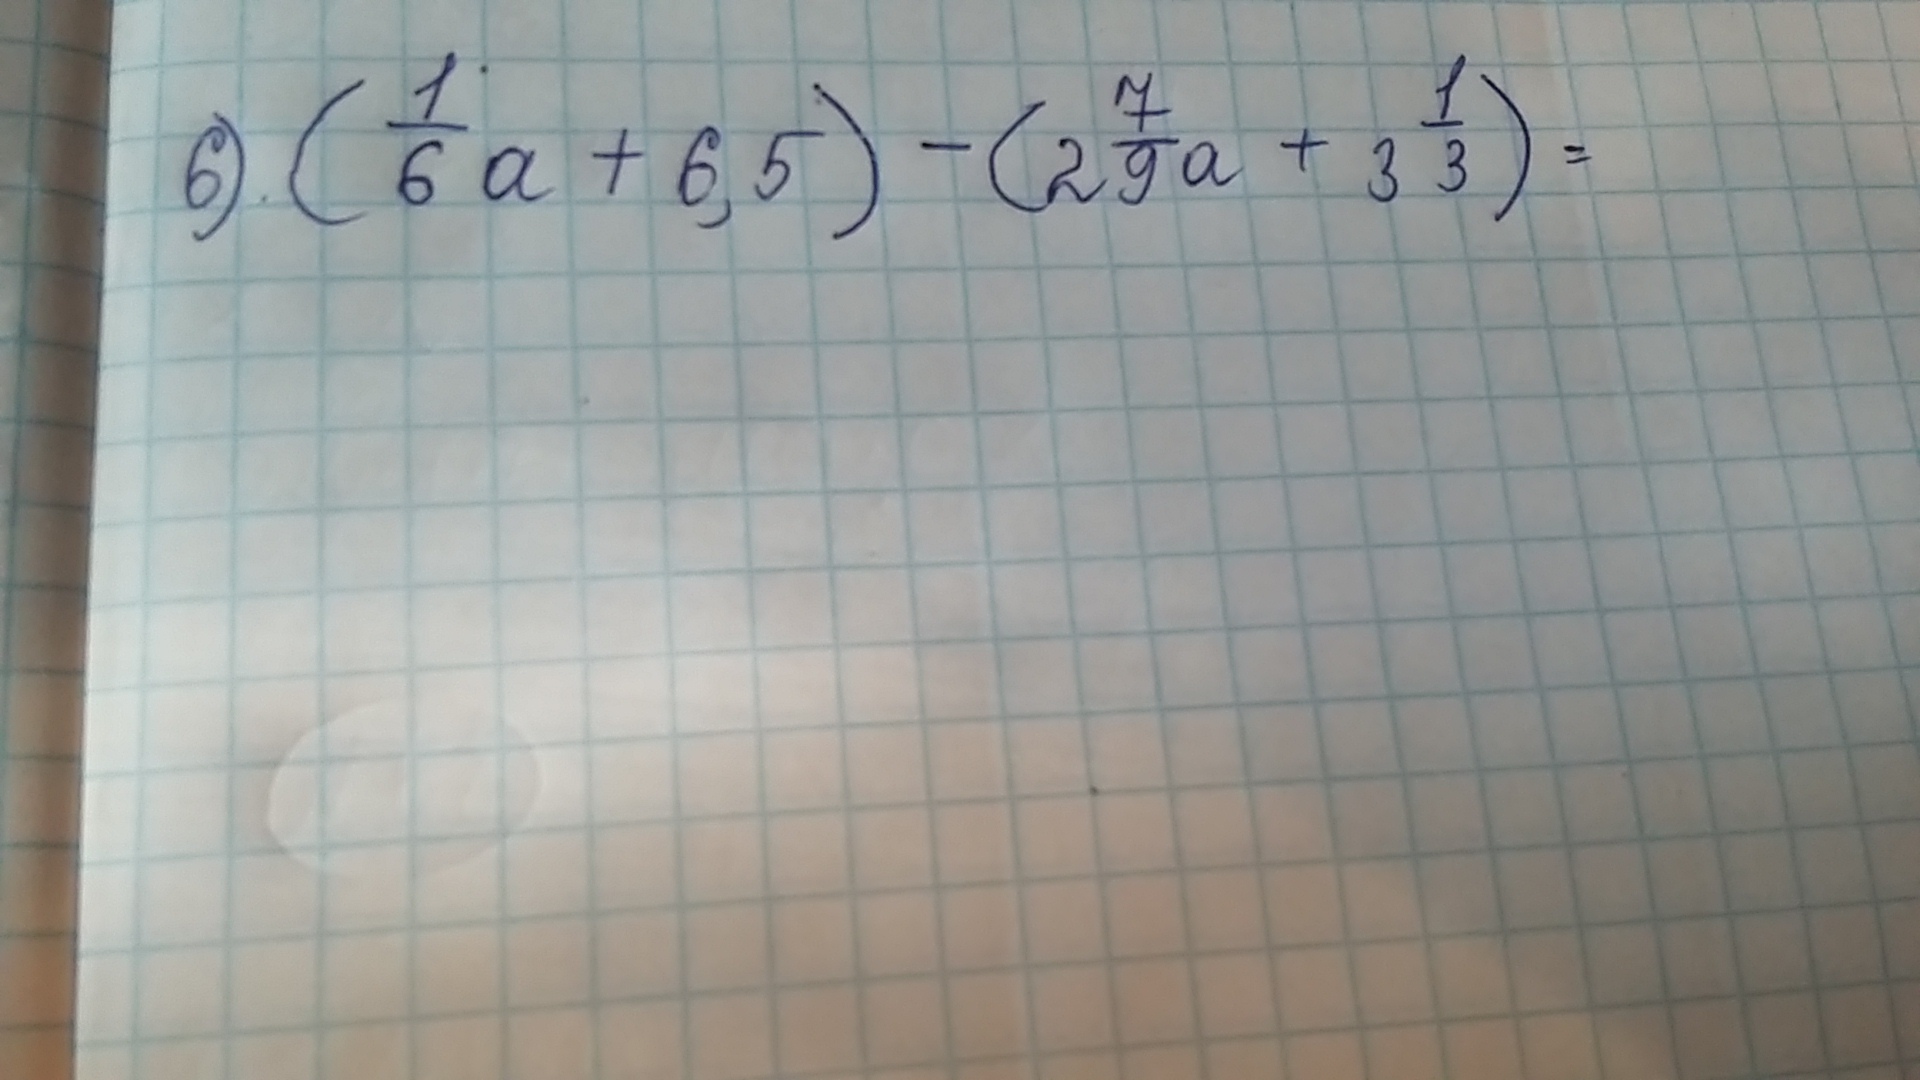 6). (1/6 a + 6,5) - (2 7/9 a + 3 1/3) =